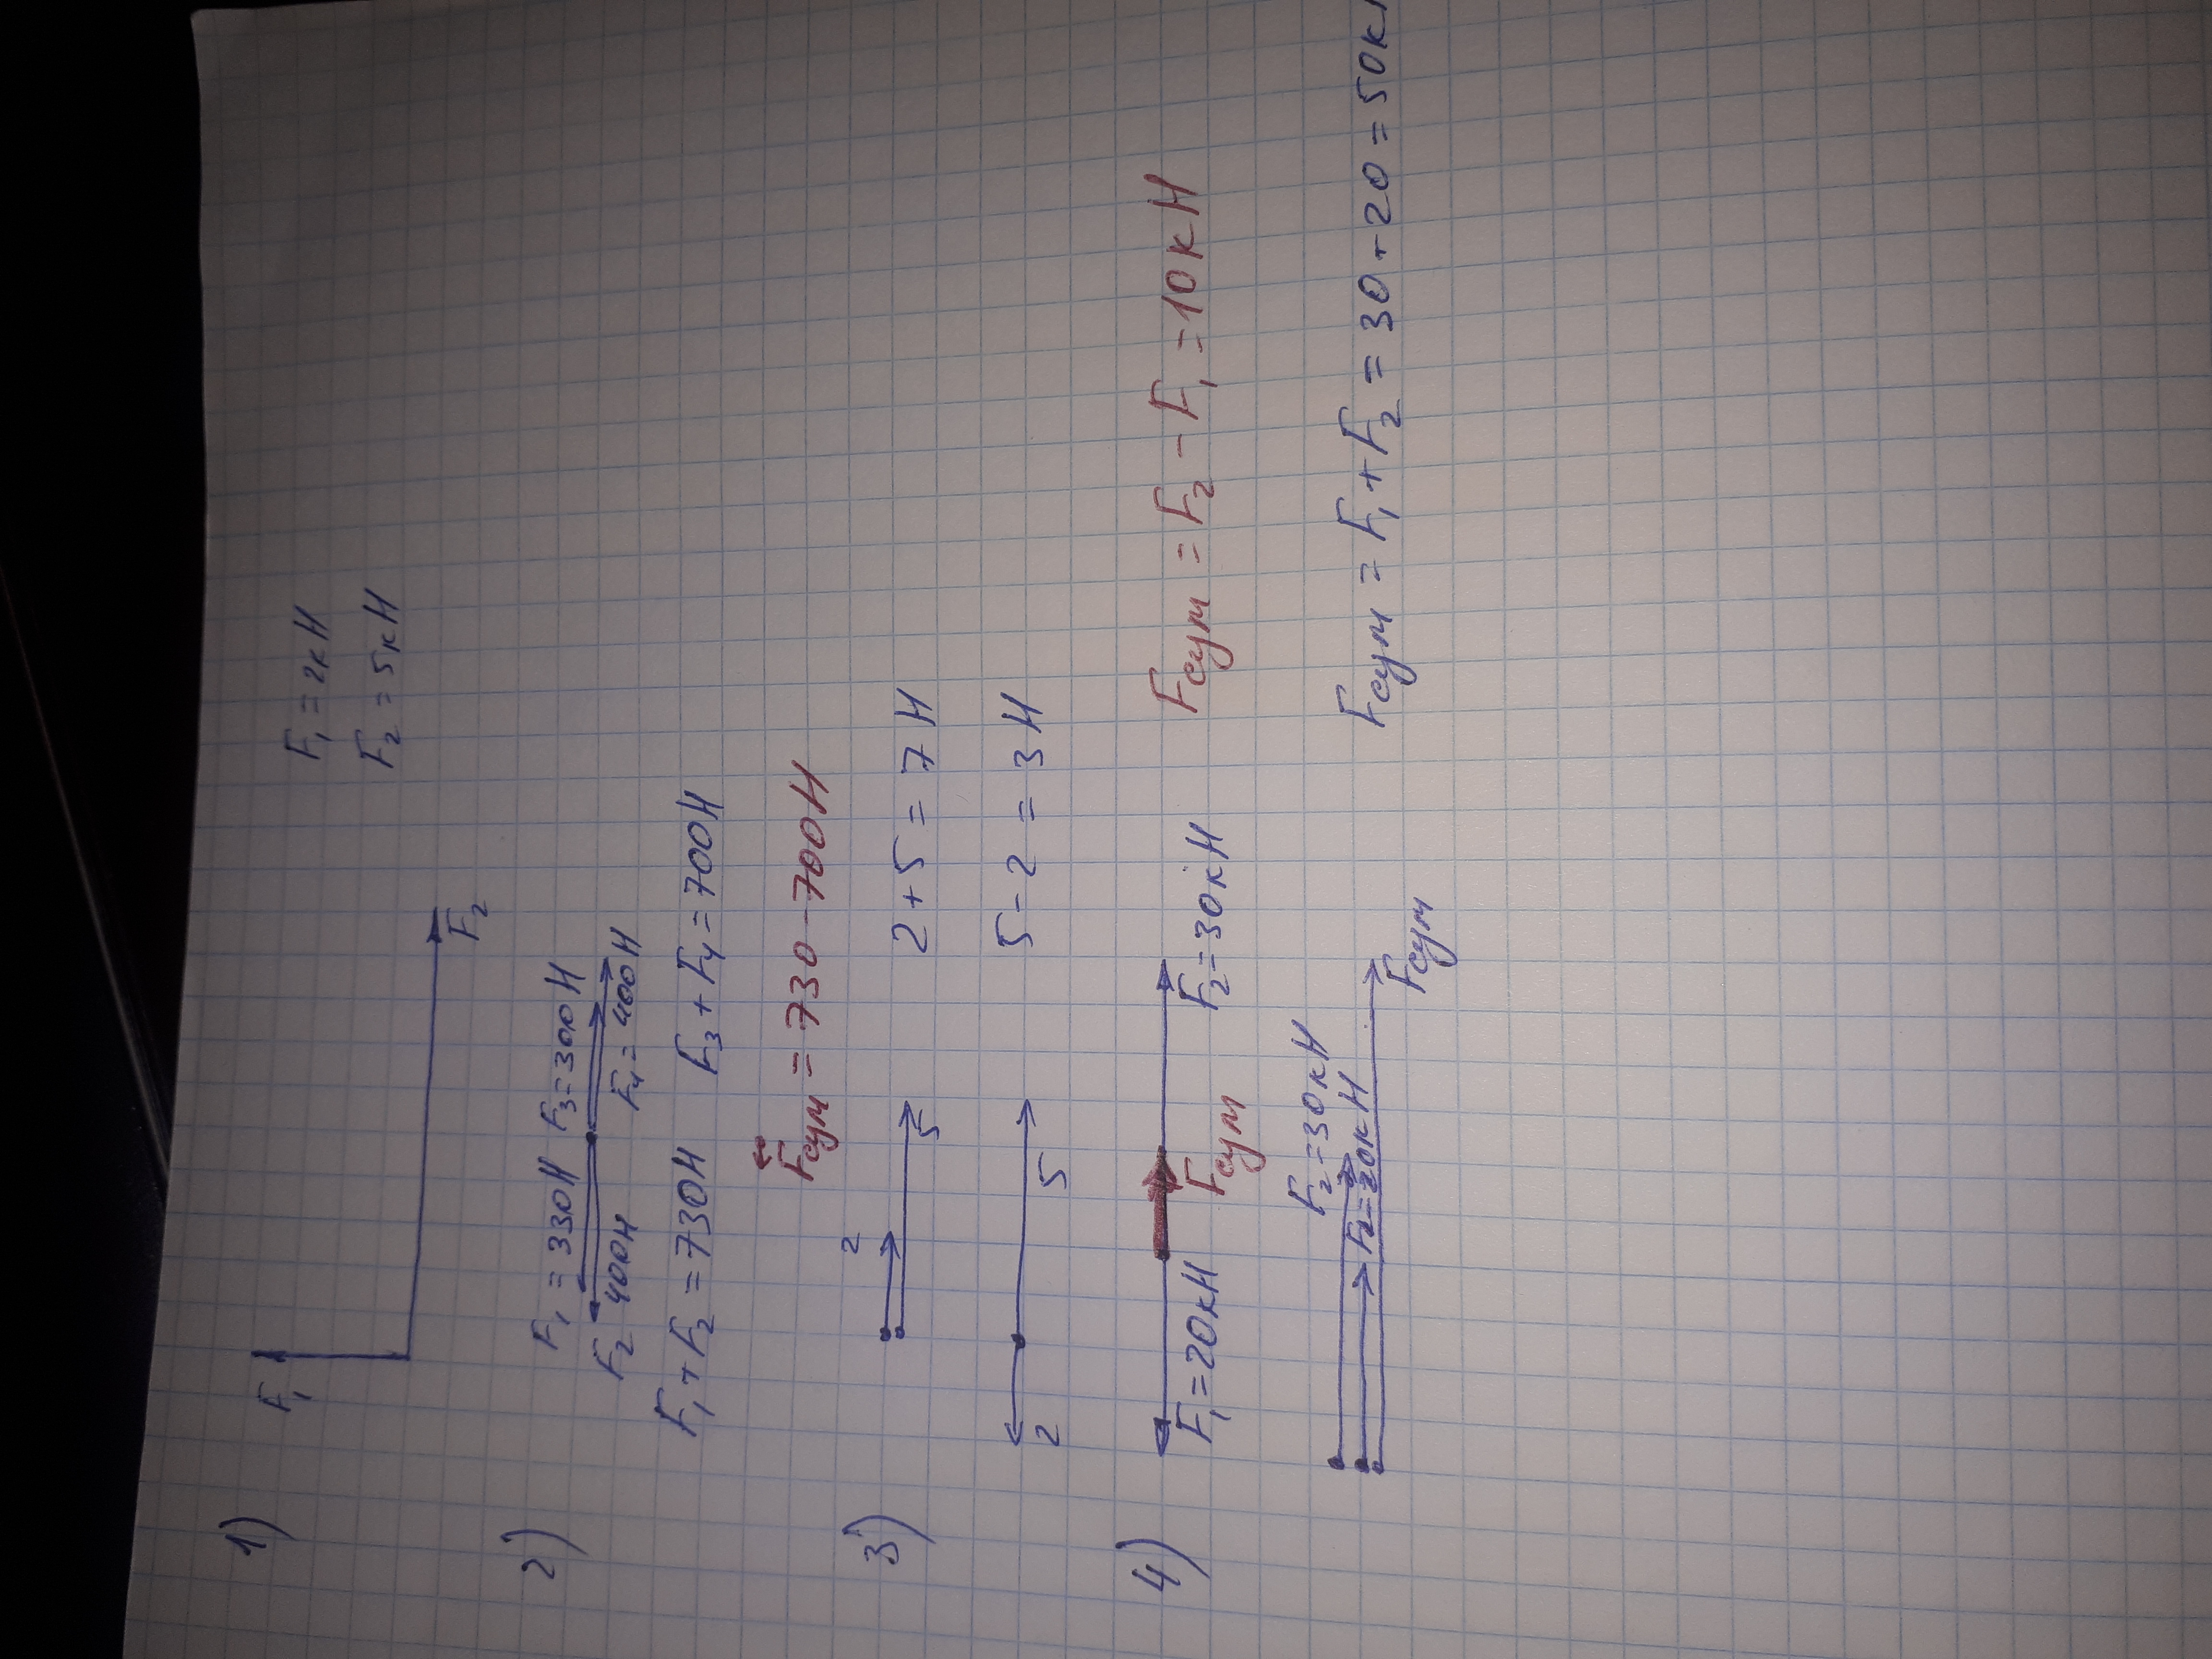 1) F₁ F₂ F₁ = 2кН
F₂ = 5кН
2) F₁ = 330Н F₃ = 300Н
F₂ 400Н F₄ = 400Н
F₁ + F₂ = 730Н F₃ + F₄ = 700Н
Fсум = 730 - 700Н
3) 2 5 2 + 5 = 7 Н
2 5 5 - 2 = 3 Н
4) F₁ = 20кН Fсум F₂ = 30кН Fсум = F₂ - F₁ = 10кН
F₂ = 30кН
F₂ = 20кН
Fсум Fсум = F₁ + F₂ = 30 + 20 = 50к